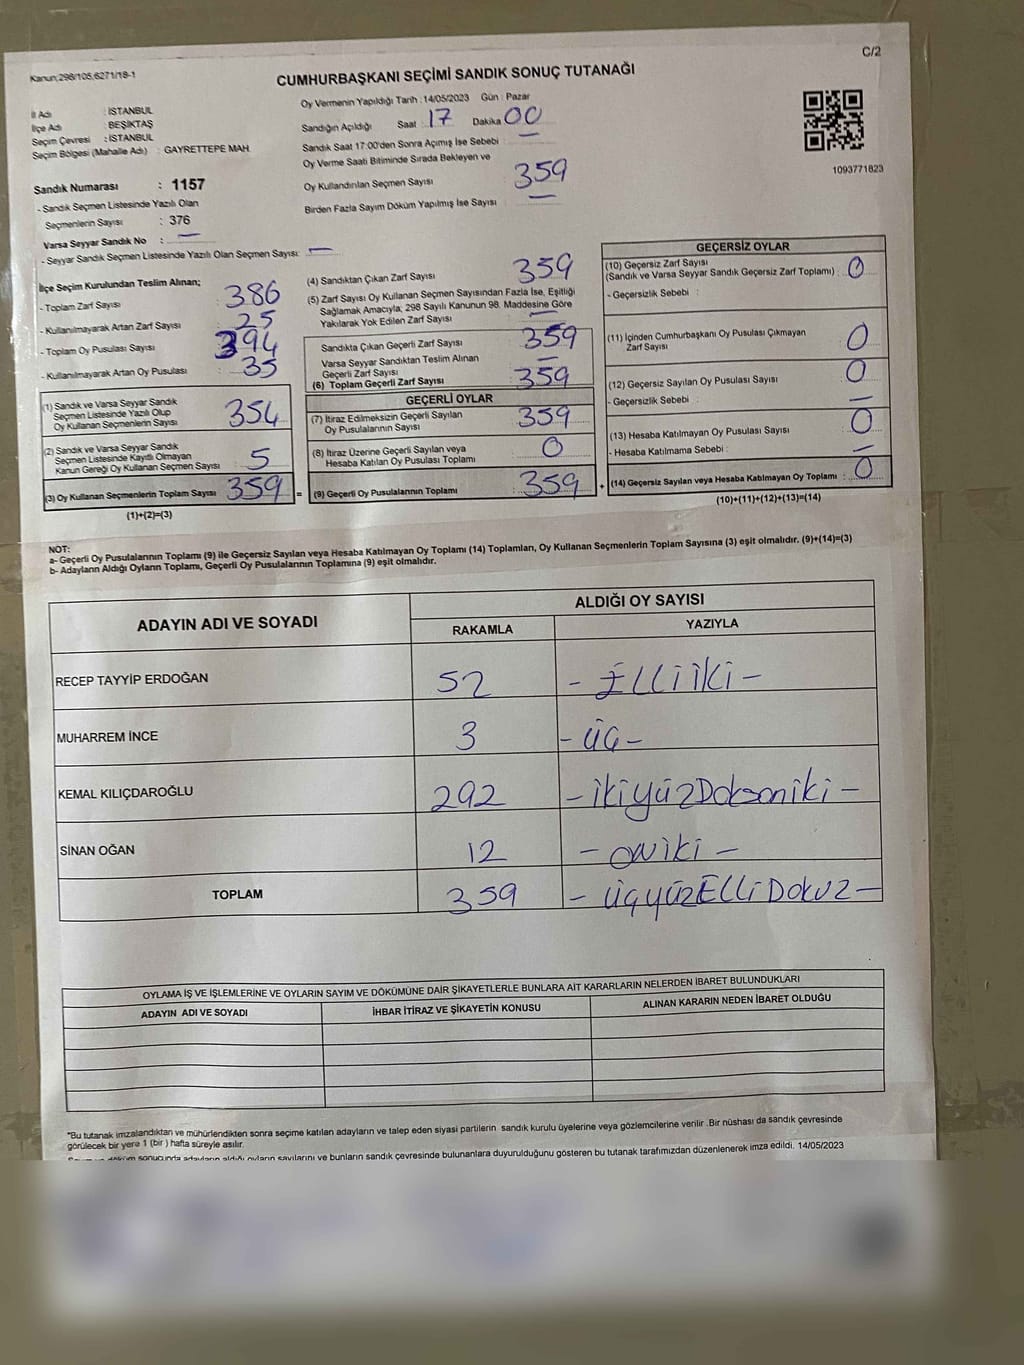 C/2
Kanun;298/105,6271/18-1
CUMHURBAŞKANI SEÇİMİ SANDIK SONUÇ TUTANAĞI
İl Adı : İSTANBUL
İlçe Adı : BEŞİKTAŞ
Seçim Çevresi : İSTANBUL
Seçim Bölgesi (Mahalle Adı) : GAYRETTEPE MAH.
Sandık Numarası : 1157
- Sandık Seçmen Listesinde Yazılı Olan
Seçmenlerin Sayısı : 376
Varsa Seyyar Sandık No : —
- Seyyar Sandık Seçmen Listesinde Yazılı Olan Seçmen Sayısı: —
Oy Vermenin Yapıldığı Tarih : 14/05/2023 Gün : Pazar
Sandığın Açıldığı Saat : 17 Dakika : 00
Sandık Saat 17:00'den Sonra Açımış İse Sebebi : —
Oy Verme Saati Bitiminde Sırada Bekleyen ve
Oy Kullandırılan Seçmen Sayısı : 359
Birden Fazla Sayım Döküm Yapılmış İse Sayısı : —
1093771823
İlçe Seçim Kurulundan Teslim Alınan;
- Toplam Zarf Sayısı : 386
- Kullanılmayarak Artan Zarf Sayısı : 25
- Toplam Oy Pusulası Sayısı : 394
- Kullanılmayarak Artan Oy Pusulası : 35
(1) Sandık ve Varsa Seyyar Sandık
Seçmen Listesinde Yazılı Olup
Oy Kullanan Seçmenlerin Sayısı : 354
(2) Sandık ve Varsa Seyyar Sandık
Seçmen Listesinde Kayıtlı Olmayan
Kanun Gereği Oy Kullanan Seçmen Sayısı : 5
(3) Oy Kullanan Seçmenlerin Toplam Sayısı : 359 =
(1)+(2)=(3)
(4) Sandıktan Çıkan Zarf Sayısı : 359
(5) Zarf Sayısı Oy Kullanan Seçmen Sayısından Fazla İse, Eşitliği
Sağlamak Amacıyla; 298 Sayılı Kanunun 98. Maddesine Göre
Yakılarak Yok Edilen Zarf Sayısı : —
Sandıkta Çıkan Geçerli Zarf Sayısı : 359
Varsa Seyyar Sandıktan Teslim Alınan
Geçerli Zarf Sayısı : —
(6) Toplam Geçerli Zarf Sayısı : 359
GEÇERLİ OYLAR
(7) İtiraz Edilmeksizin Geçerli Sayılan
Oy Pusulalarının Sayısı : 359
(8) İtiraz Üzerine Geçerli Sayılan veya
Hesaba Katılan Oy Pusulası Toplamı : 0
(9) Geçerli Oy Pusulalarının Toplamı : 359 +
GEÇERSİZ OYLAR
(10) Geçersiz Zarf Sayısı
(Sandık ve Varsa Seyyar Sandık Geçersiz Zarf Toplamı) : 0
- Geçersizlik Sebebi :
(11) İçinden Cumhurbaşkanı Oy Pusulası Çıkmayan
Zarf Sayısı : 0
(12) Geçersiz Sayılan Oy Pusulası Sayısı : 0
- Geçersizlik Sebebi : —
(13) Hesaba Katılmayan Oy Pusulası Sayısı : 0
- Hesaba Katılmama Sebebi : —
(14) Geçersiz Sayılan veya Hesaba Katılmayan Oy Toplamı : 0
(10)+(11)+(12)+(13)=(14)
NOT:
a- Geçerli Oy Pusulalarının Toplamı (9) ile Geçersiz Sayılan veya Hesaba Katılmayan Oy Toplamı (14) Toplamları, Oy Kullanan Seçmenlerin Toplam Sayısına (3) eşit olmalıdır. (9)+(14)=(3)
b- Adayların Aldığı Oyların Toplamı, Geçerli Oy Pusulalarının Toplamına (9) eşit olmalıdır.
ADAYIN ADI VE SOYADI ALDIĞI OY SAYISI
RAKAMLA YAZIYLA
RECEP TAYYİP ERDOĞAN 52 - ELLİ İKİ -
MUHARREM İNCE 3 - ÜÇ -
KEMAL KILIÇDAROĞLU 292 - İkiyüzDoksaniki -
SİNAN OĞAN 12 - ONİKİ -
TOPLAM 359 - üçyüzELLİDokuz -
OYLAMA İŞ VE İŞLEMLERİNE VE OYLARIN SAYIM VE DÖKÜMÜNE DAİR ŞİKAYETLERLE BUNLARA AİT KARARLARIN NELERDEN İBARET BULUNDUKLARI
ADAYIN ADI VE SOYADI İHBAR İTİRAZ VE ŞİKAYETİN KONUSU ALINAN KARARIN NEDEN İBARET OLDUĞU
"Bu tutanak imzalandıktan ve mühürlendikten sonra seçime katılan adayların ve talep eden siyasi partilerin sandık kurulu üyelerine veya gözlemcilerine verilir .Bir nüshası da sandık çevresinde
görülecek bir yere 1 (bir ) hafta süreyle asılır.
döküm sonucunda adayların aldığı oyların sayılarını ve bunların sandık çevresinde bulunanlara duyurulduğunu gösteren bu tutanak tarafımızdan düzenlenerek imza edildi. 14/05/2023